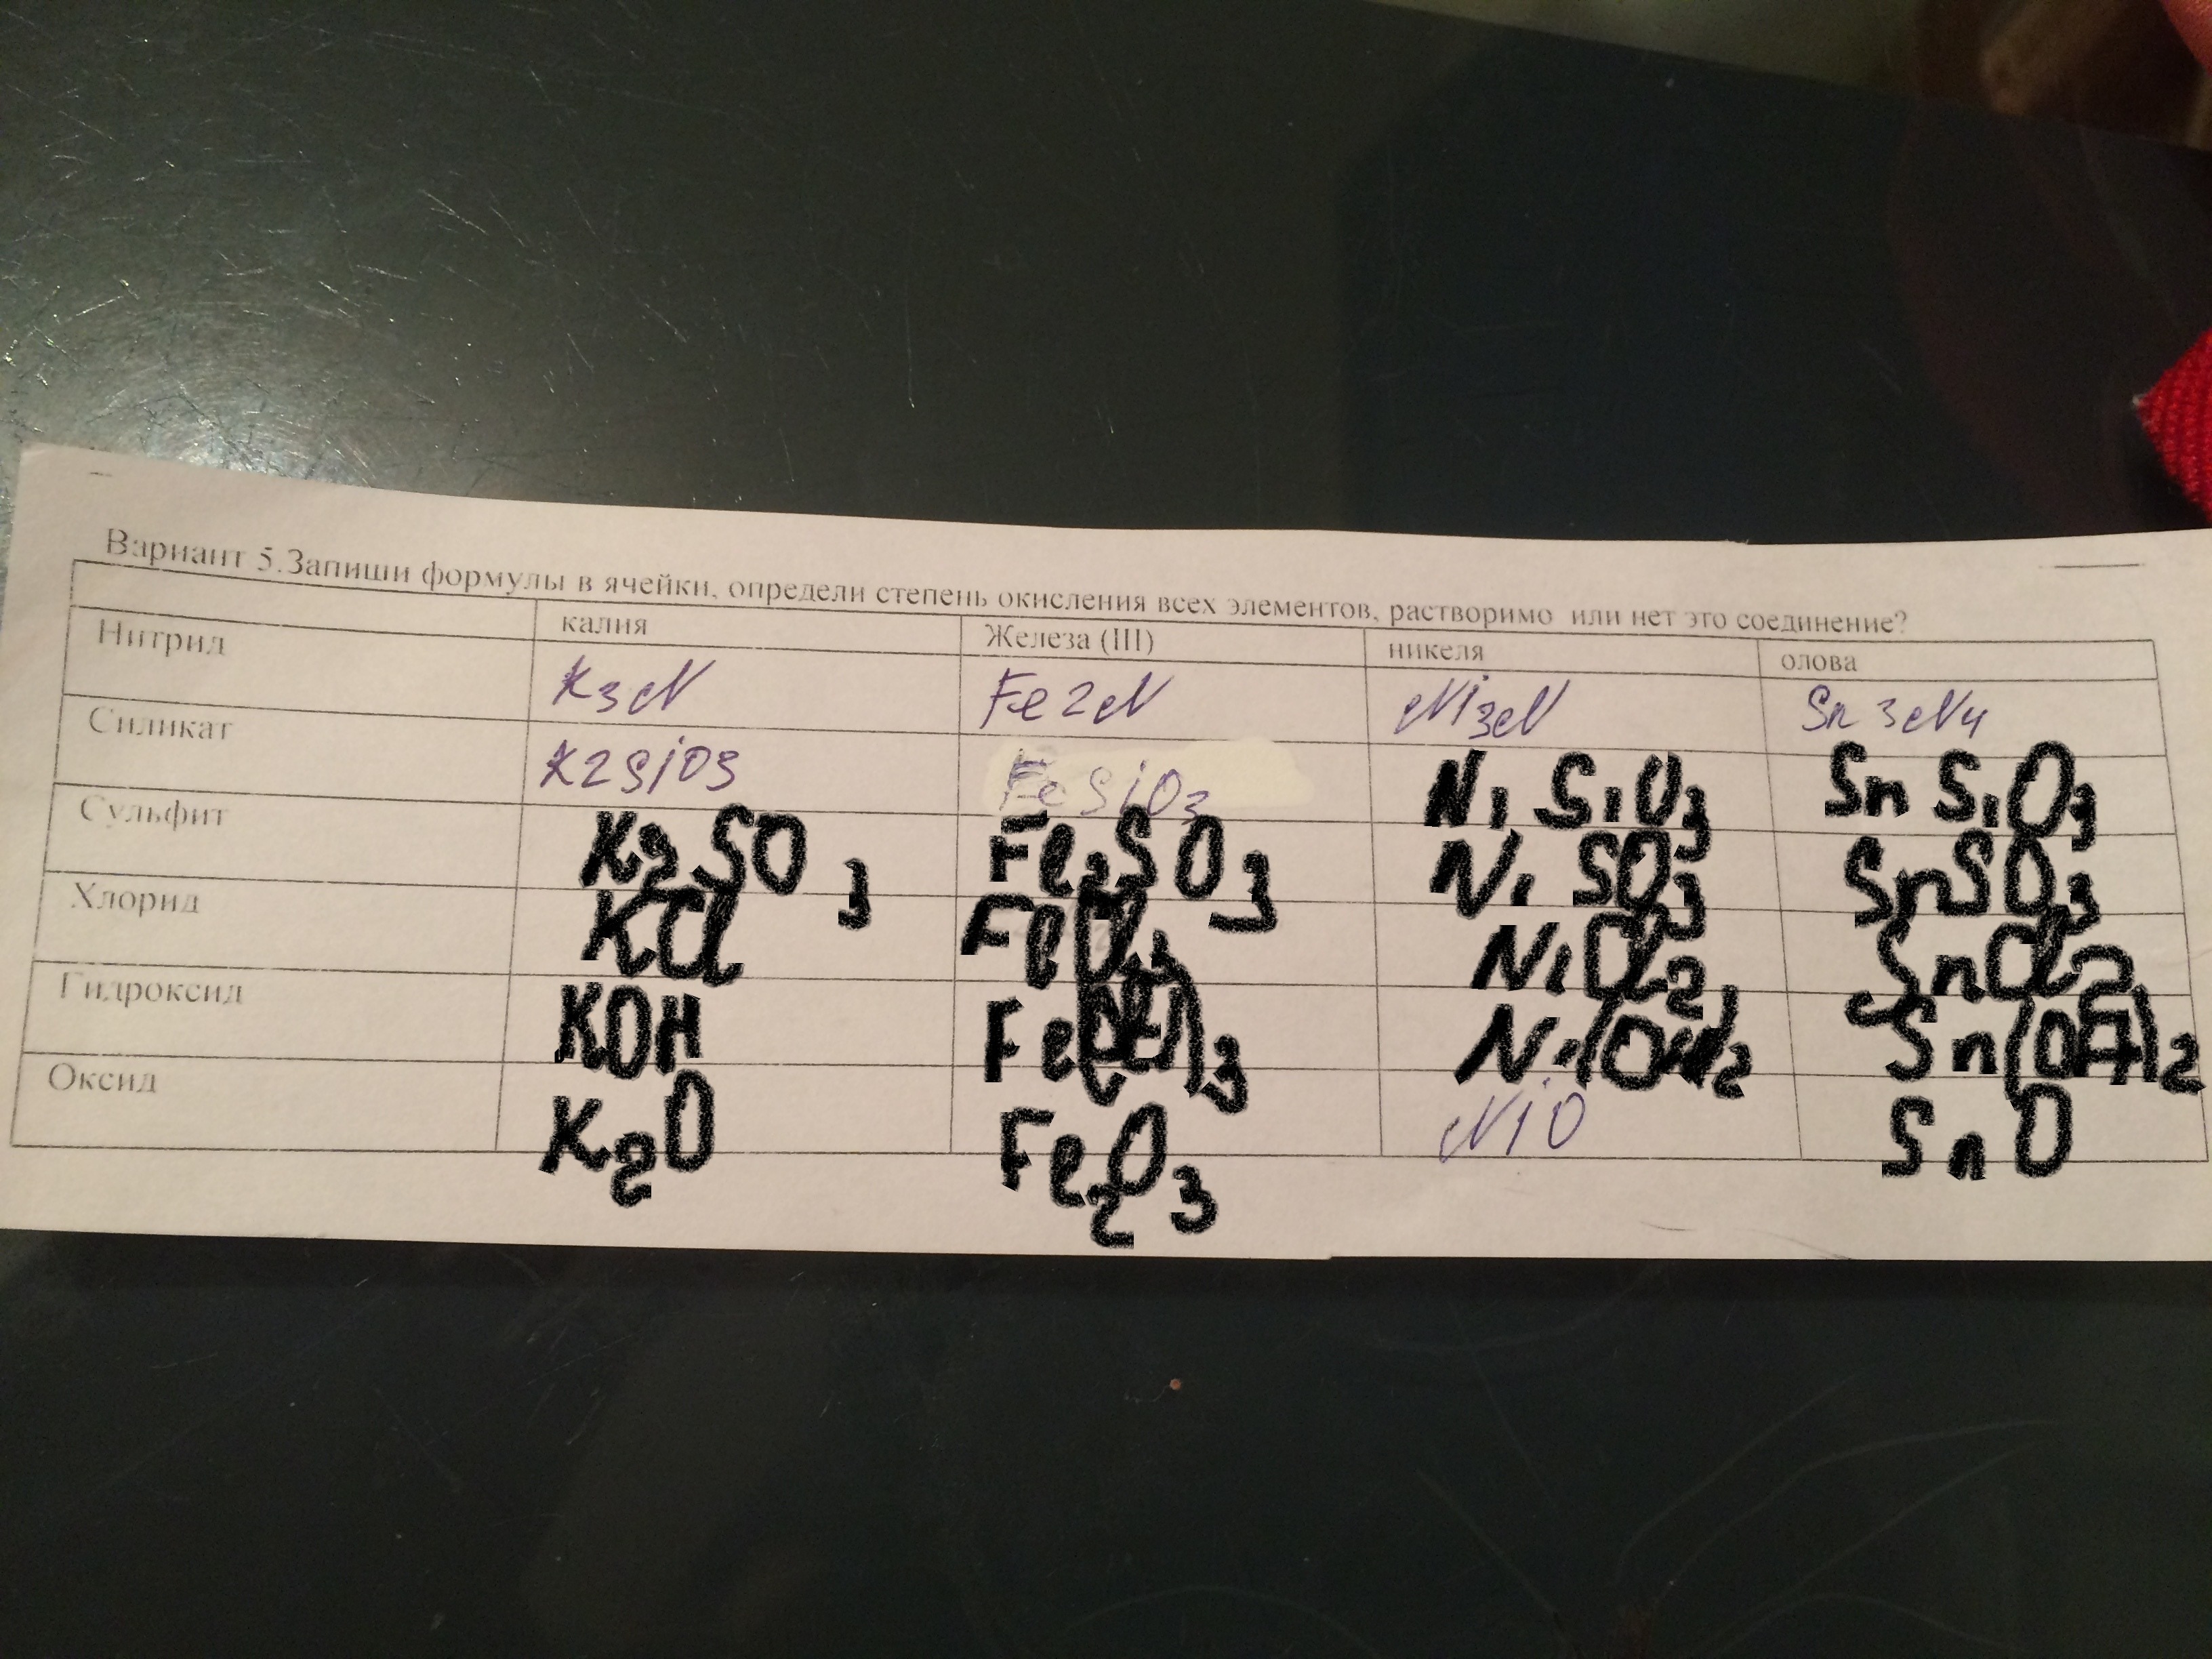 Вариант 5.Запиши формулы в ячейки, определи степень окисления всех элементов, растворимо или нет это соединение?
калия Железа (III) никеля олова
Нитрид K3N Fe2N Ni3N Sn3N4
Силикат K2SiO3 FeSiO3 NiSiO3 SnSiO3
Сульфит K2SO3 Fe2SO3 NiSO3 SnSO3
Хлорид KCl NiCl2 SnCl2
Гидроксид KOH Fe(OH)3 Ni(OH)2 Sn(OH)2
Оксид K2O Fe2O3 NiO SnO